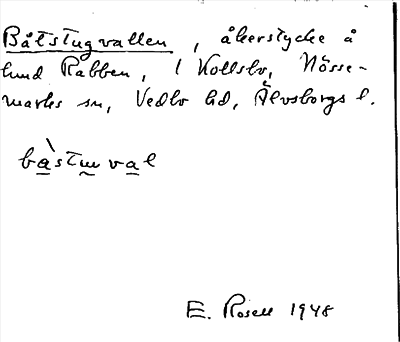 Båtstugvallen, åkerstycke å
lund Råbben, 1 Kollsbo, Nösse-
marks sn, Vedbo hd, Älvsborgs l.
bàstuɯval
E. Rosell 1948